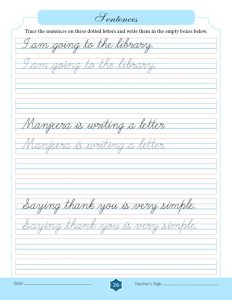 Sentences
Trace the sentences on these dotted letters and write them in the empty boxes below.
I am going to the library.
I am going to the library.
Manjeera is writing a letter.
Manjeera is writing a letter.
Saying thank you is very simple.
Saying thank you is very simple.
Date: 26 Teacher's Sign